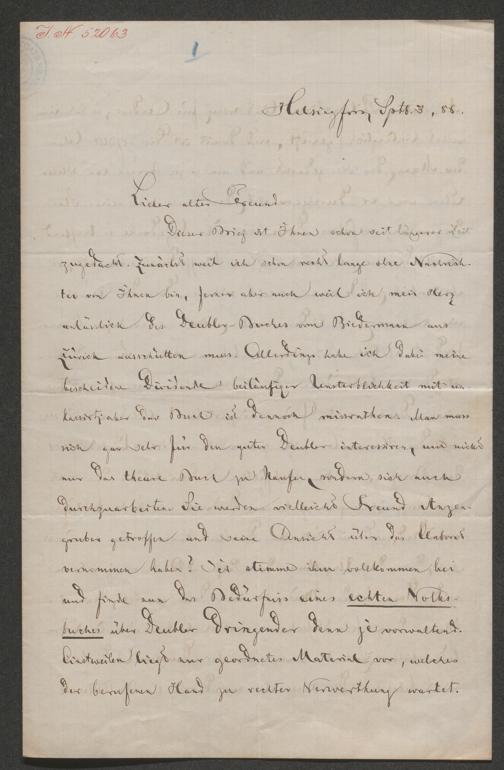 I. N. 52063
1
Helsingfors, Sptb. 3, 88.
Lieber alter Freund
Dieser Brief ist Ihnen schon seit längerer Zeit
zugedacht. Zunächst weil ich schon recht lange ohne Nachrich-
ten von Ihnen bin, ferner aber auch weil ich mein Herz
anlässlich des Deubler-Buches vom Biedermann aus
Zürich ausschütten muss. Allerdings habe ich dabei meine
bescheidene Dividende beiläufiger Unsterblichkeit mit
aber das Buch ist dennoch missrathen. Man muss
sich gar sehr für den guten Deubler interessiren, um nicht
nur das theure Buch zu kaufen, sondern sich auch
durchzuarbeiten. Sie werden vielleicht Freund Anzen-
gruber getroffen und seine Ansicht über das Elaborat
vernommen haben? Ich stimme ihm vollkommen bei
und finde nun das Bedürfniss eines echten Volks-
buches über Deubler dringender denn je vorwaltend.
Einstweilen liegt nur geordnetes Material vor, welches
der berufenen Hand zu rechter Verwerthung wartet.